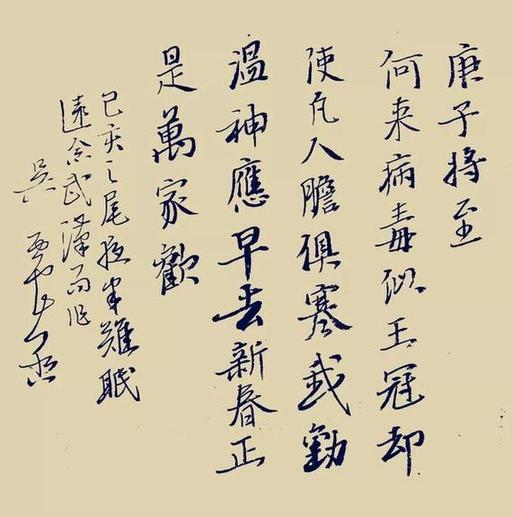 庚子将至
何来病毒似王冠却
使凡人膽俱寒我勸
温神應早去新春正
是萬家歡
己亥之尾夜半難眠
遠念武漢而作
吴